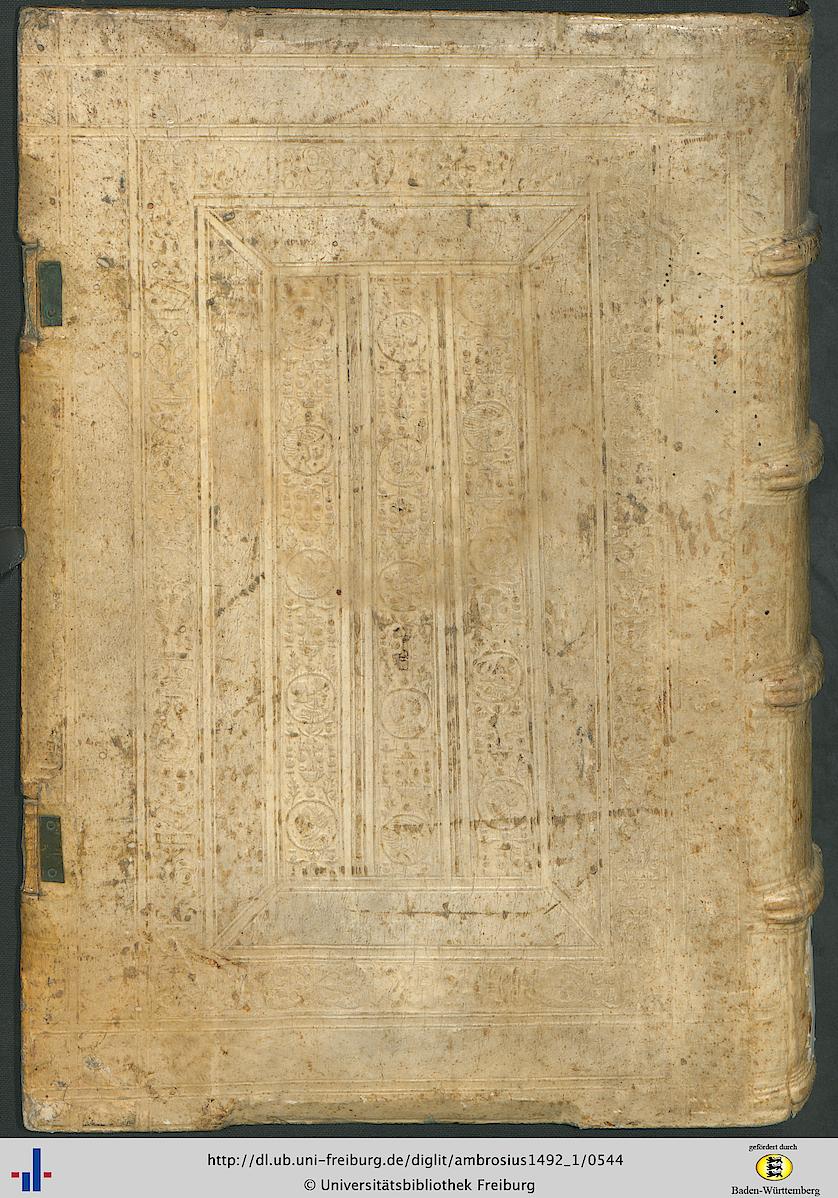 http://dl.ub.uni-freiburg.de/diglit/ambrosius1492_1/0544
© Universitätsbibliothek Freiburg
gefördert durch
Baden-Württemberg